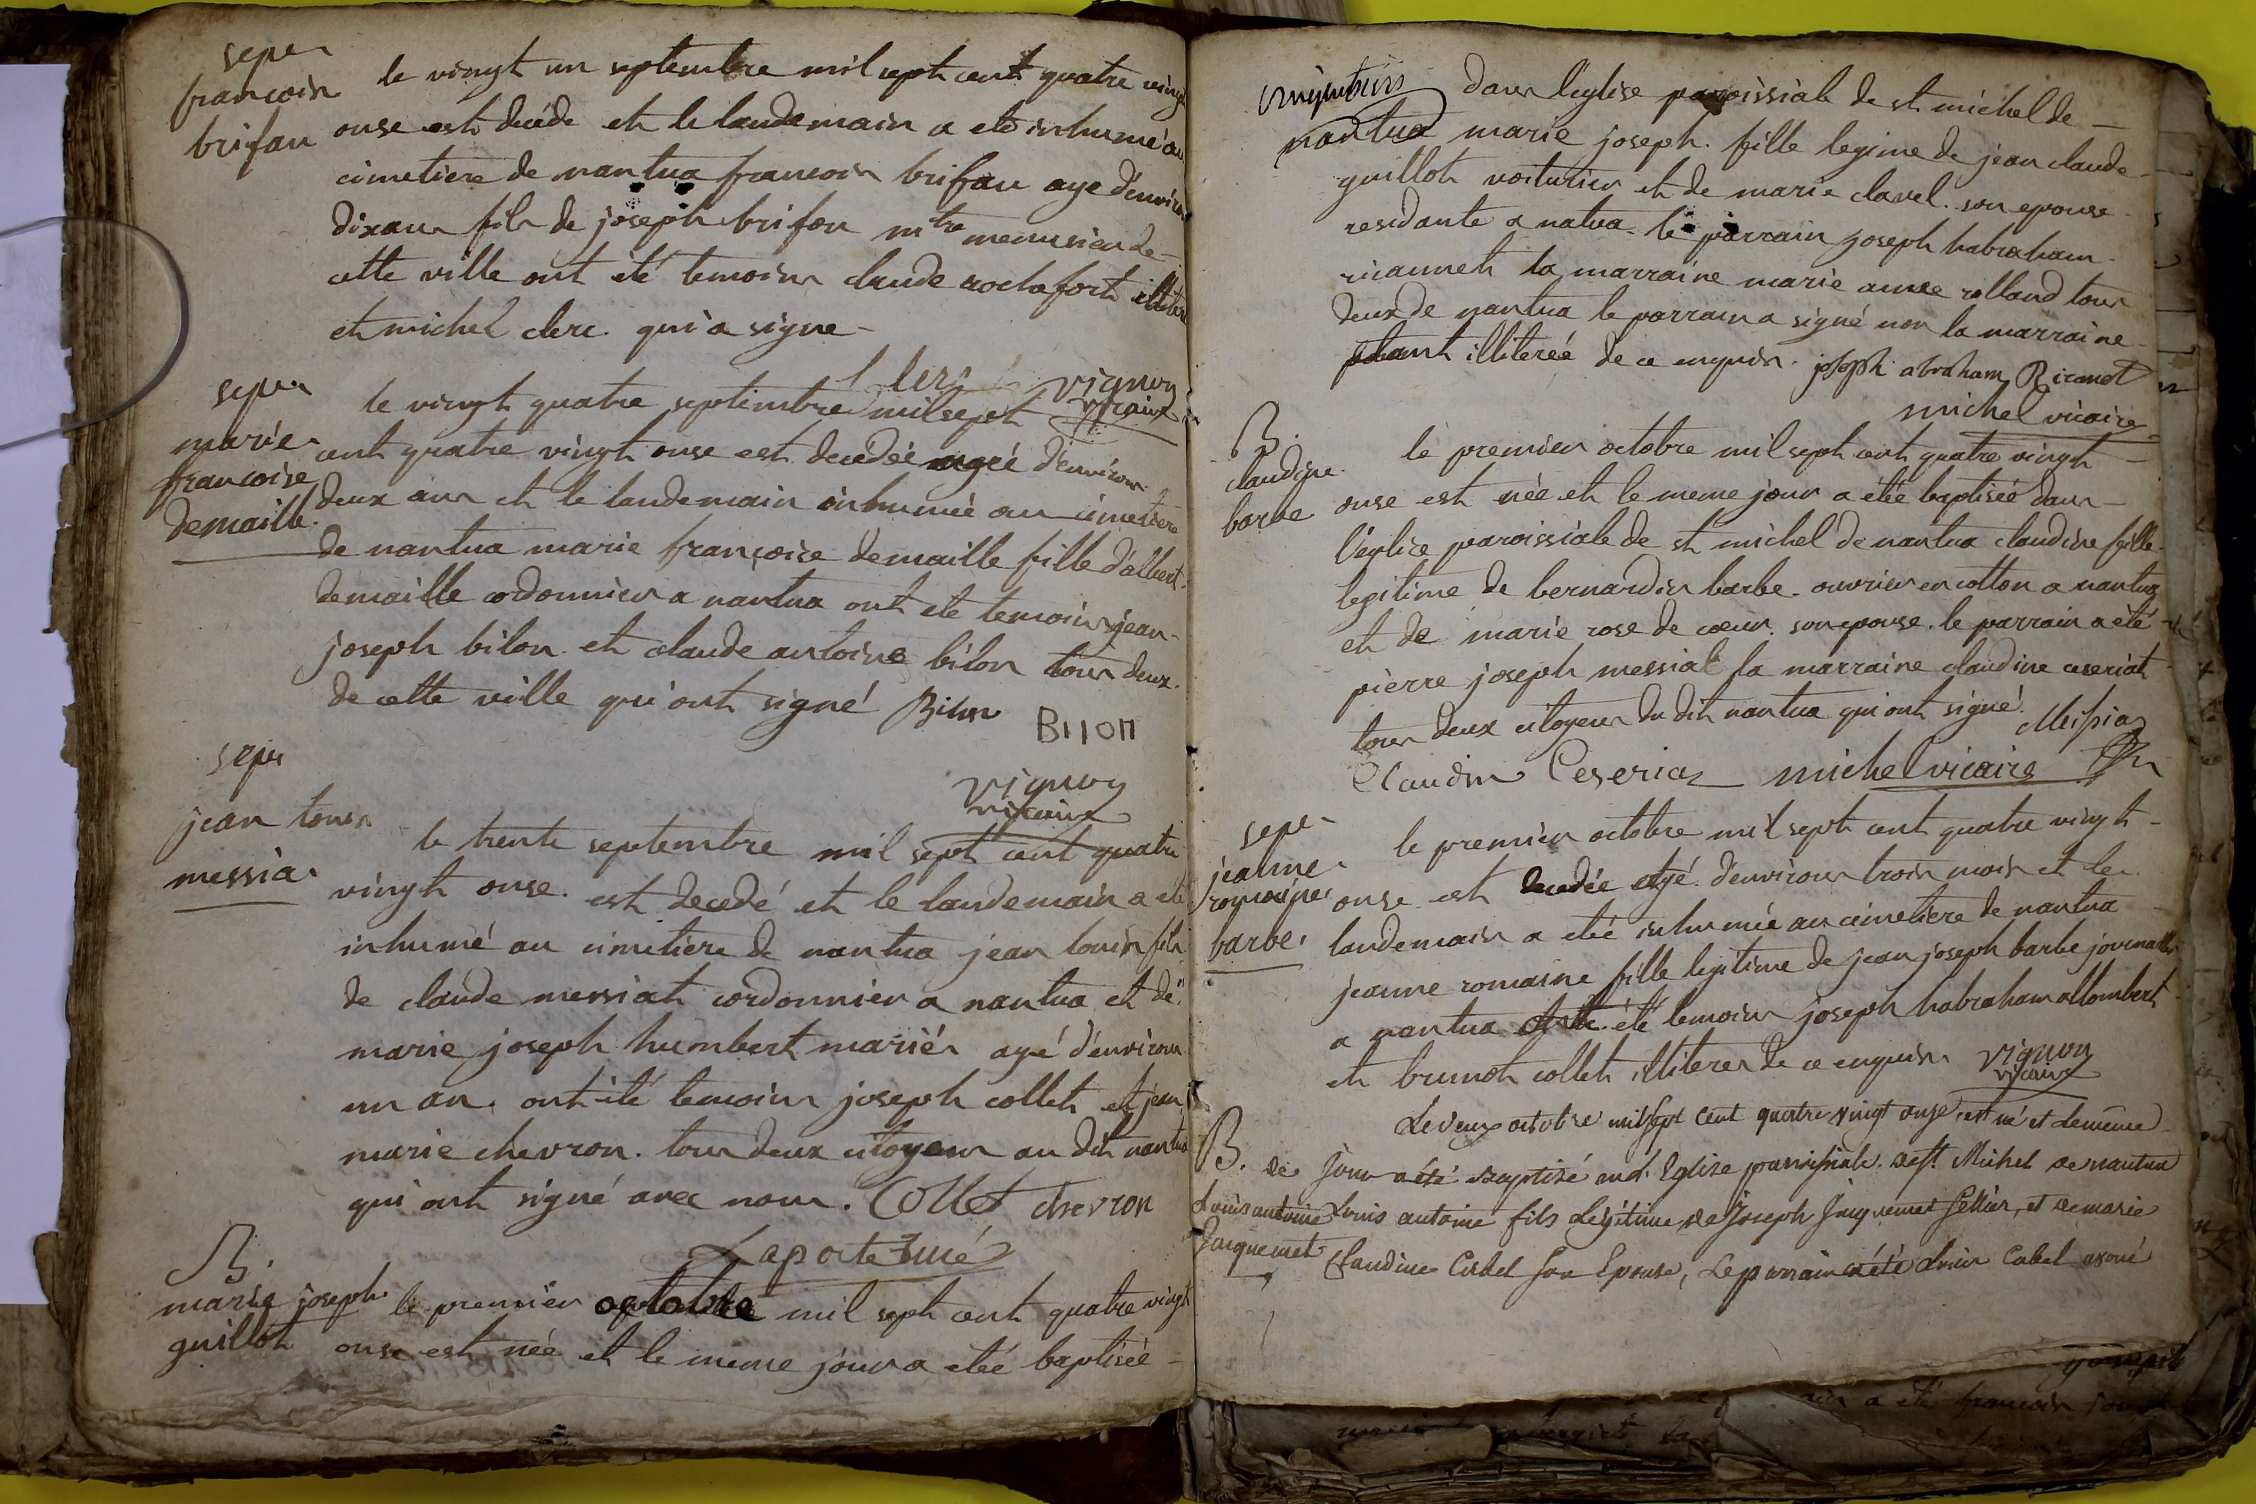 sepr
francois
brifau
le vingt un septembre mil sept cent quatre vingt
onse est décédé et le landemain a eté inhumé au
cimetiere de nantua francois brifau agé d'environ
dix ans fils de joseph brifau mtre menusier de
cette ville ont été temoins claude rochefort illiteré
et michel clerc qui a signé
Clerc vignon
vicaire
sepr
marie
francoise
demaille
le vingt quatre septembre mil sept
cent quatre vingt onse est decedée agé d'environ
deux ans et le landemain inhumée au cimetiere
de nantua marie françoise demaille fille d'albert
demaille cordonnier a nantua ont eté temoins jean
joseph bilon et claude antoine bilon tous deux
de cette ville qui ont signé Bilon
BIJON
vignon
vicaire
sepr
jean louis
messia
le trente septembre mil sept cent quatre
vingt onse est decedé et le landemain a eté
inhumé au cimetiere de nantua jean louis fils
de claude messiat cordonnier a nantua et de
marie joseph humbert mariés agé d'environ
un an ont été temoins joseph collet et jean
marie chevron tous deux citoyens au dit nantua
qui ont signé avec nous. Collet chevron
Laporte curé
B.
marie joseph
guillot
le premier octobre mil sept cent quatre vingt
onse est née et le meme jour a eteé baptisée
dans l'eglise paroissiale de st michel de
nantua marie joseph fille legime de jean claude
guillot voiturier et de marie clavel son epouse
residante a natua le parrain joseph habraham
ricannet la marraine marie anne rolland tous
deux de nantua le parrain a signé non la marraine
etant illitereé de ce enquis. joseph abraham Ricanet
michel vicaire
B.
claudine
barbe
le premier octobre mil sept cent quatre vingt
onse est née et le meme jour a éteé baptiseé dans
l'eglise paroissiale de st michel de nantua claudine fille
legitime de bernardin barbe ouvrier en cotton a nantua
et de marie rose de coeur son epouse. le parrain a été
pierre joseph messiat la marraine claudine ceseriat
tous deux citoyens du dit nantua qui ont signé. Messia
Claudin Ceseria michel vicaire
sepr
jeanne
romaine
barbe
le premier octobre mil sept cent quatre vingt
onse est decedée agé d'environ trois mois et le
landemain a eteé inhumée au cimetiere de nantua
jeanne romaine fille legitime de jean joseph barbe journallier
a nantua été temoins joseph habraham allombert
et brunot collet illiteres de ce enquis vignon
vicaire
B. de
Louis antoine
Jacquemet
Le deux octobre mil sept cent quatre vingt onze est né et le meme
jour a été baptizé en l'Eglize parroissiale de st. Michel de nantua
Louis antoine fils Légitime de Joseph Jacquemet sellier, et de marie
Claudine Cabel son Epouse, le parrain a été Louis Cabel avoué